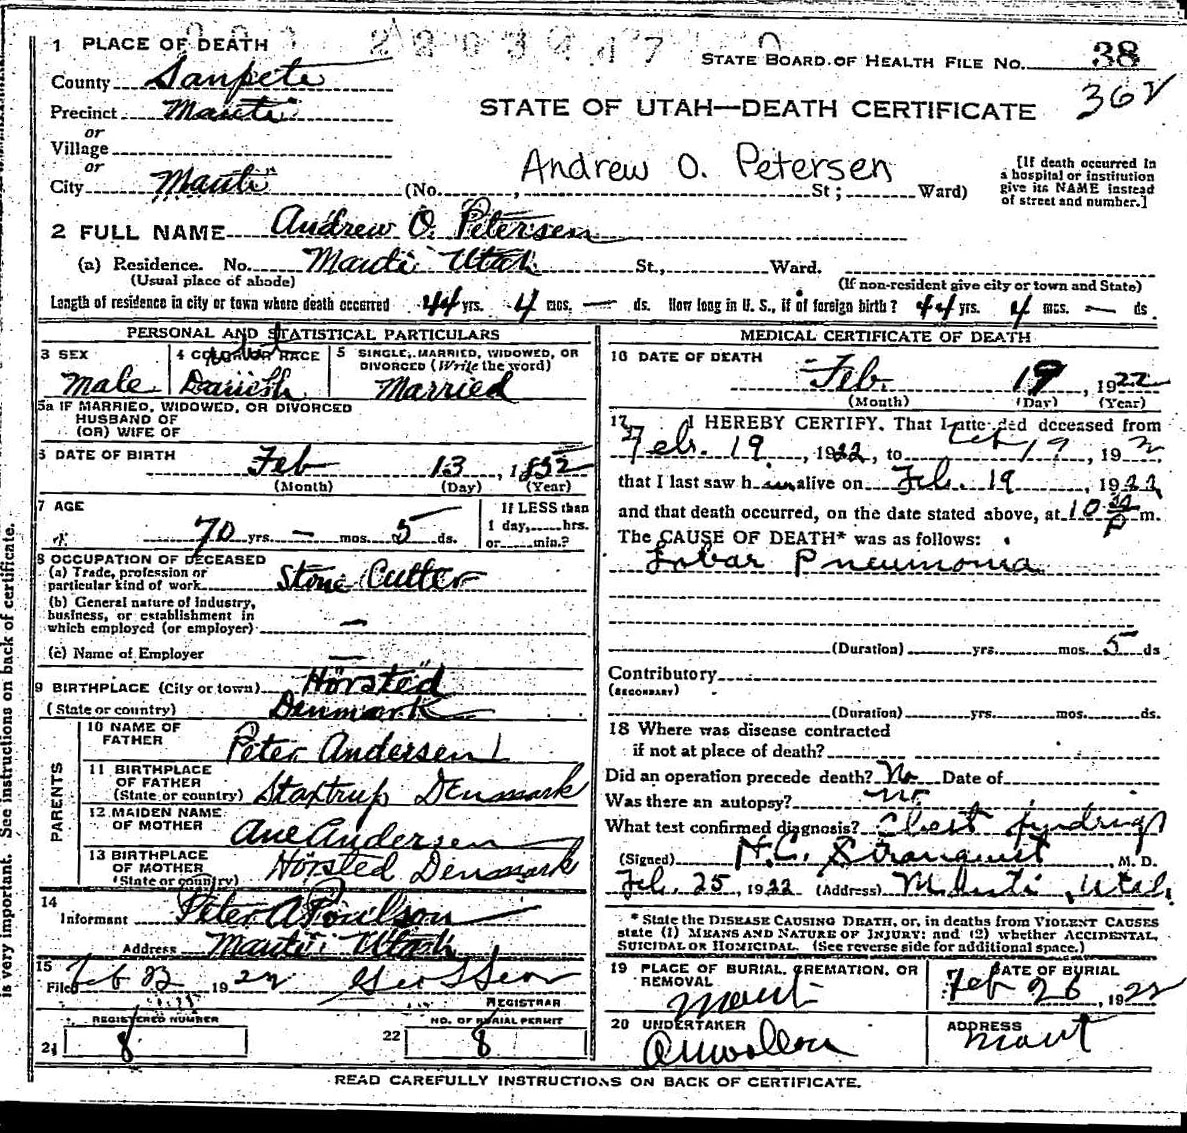 1 PLACE OF DEATH
STATE BOARD OF HEALTH FILE NO. 38
County Sanpete
362
STATE OF UTAH—DEATH CERTIFICATE
Precinct Manti
or
Village
or
City Manti (No. , St; Ward)
Andrew O. Petersen
[If death occurred in
a hospital or institution
give its NAME instead
of street and number.]
2 FULL NAME Andrew O. Petersen
(a) Residence. No. Manti Utah St., Ward.
(Usual place of abode) (If non-resident give city or town and State)
Length of residence in city or town where death occurred 44 yrs. 4 mos. — ds. How long in U. S., if of foreign birth? 44 yrs. 4 mos. — ds.
PERSONAL AND STATISTICAL PARTICULARS
3 SEX Male
4 COLOR OR RACE Danish
5 SINGLE, MARRIED, WIDOWED, OR
DIVORCED (Write the word)
Married
5a IF MARRIED, WIDOWED, OR DIVORCED
HUSBAND OF
(OR) WIFE OF
6 DATE OF BIRTH
Feb 13, 1852
(Month) (Day) (Year)
7 AGE
70 yrs. — mos. 5 ds.
If LESS than
1 day, hrs.
or min.?
8 OCCUPATION OF DECEASED
(a) Trade, profession or
particular kind of work Stone Cutter
(b) General nature of industry,
business, or establishment in
which employed (or employer) —
(c) Name of Employer —
9 BIRTHPLACE (City or town) Hörsted
(State or country) Denmark
PARENTS
10 NAME OF
FATHER Peter Andersen
11 BIRTHPLACE
OF FATHER
(State or country) Staxtrup Denmark
12 MAIDEN NAME
OF MOTHER Ane Andersen
13 BIRTHPLACE
OF MOTHER
(State or country) Hörsted Denmark
14
Informant Peter A Poulson
Address Manti Utah
15
Filed Feb 23 1922
REGISTRAR
REGISTERED NUMBER
21 8
NO. OF BURIAL PERMIT
22 8
MEDICAL CERTIFICATE OF DEATH
16 DATE OF DEATH
Feb. 19, 1922
(Month) (Day) (Year)
17 I HEREBY CERTIFY, That I attended deceased from
Feb. 19, 1922, to Feb 19, 192
that I last saw him alive on Feb. 19 1922
and that death occurred, on the date stated above, at 10 30 P m.
The CAUSE OF DEATH* was as follows:
Lobar Pneumonia
(Duration) yrs. mos. 5 ds
Contributory
(SECONDARY)
(Duration) yrs. mos. ds.
18 Where was disease contracted
if not at place of death?
Did an operation precede death? No Date of
Was there an autopsy? No
What test confirmed diagnosis? Chest findings
(Signed) H.C. Stranquist, M. D.
Feb. 25, 1922 (Address) Manti, Utah.
* State the DISEASE CAUSING DEATH, or, in deaths from VIOLENT CAUSES
state (1) MEANS AND NATURE OF INJURY; and (2) whether ACCIDENTAL,
SUICIDAL OR HOMICIDAL. (See reverse side for additional space.)
19 PLACE OF BURIAL, CREMATION, OR
REMOVAL
Manti
DATE OF BURIAL
Feb 26, 1922
20 UNDERTAKER
ADDRESS
Manti
READ CAREFULLY INSTRUCTIONS ON BACK OF CERTIFICATE.
is very important. See instructions on back of certificate.